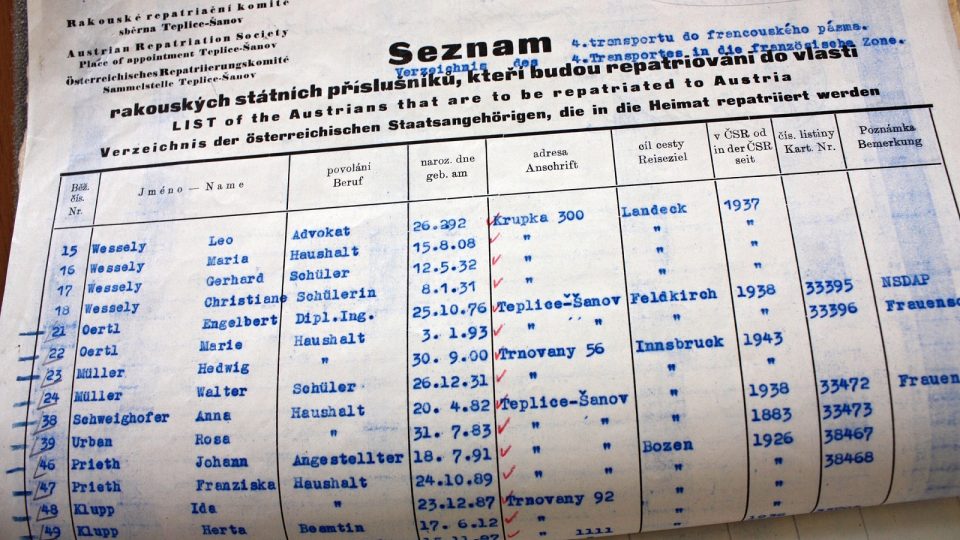 Rakouské repatriační komité
sběrna Teplice-Šanov
Austrian Repatriation Society
Place of appointment Teplice-Šanov
Österreichisches Repatriierungskomité
Sammelstelle Teplice-Šanov
Seznam 4.transportu do francouského pásma.
Verzeichnis des 4.Transportes in die französische Zone.
rakouských státních příslušníků, kteří budou repatriováni do vlasti
LIST of the Austrians that are to be repatriated to Austria
Verzeichnis der österreichischen Staatsangehörigen, die in die Heimat repatriiert werden
Běž. čís. Nr. Jméno — Name povolání Beruf naroz. dne geb. am adresa Anschrift cíl cesty Reiseziel v ČSR od in der ČSR seit čís. listiny Kart. Nr. Poznámka Bemerkung
15 Wessely Leo Advokat 26.292 Krupka 300 Landeck 1937
16 Wessely Maria Haushalt 15.8.08 " " "
17 Wessely Gerhard Schüler 12.5.32 " " "
18 Wessely Christiane Schülerin 8.1.31 " " "
21 Oertl Engelbert Dipl.Ing. 25.10.76 Teplice-Šanov Feldkirch 1938 33395 NSDAP
22 Oertl Marie Haushalt 3. 1.93 " " " " 33396 Frauensc
23 Müller Hedwig " 30. 9.00 Trnovany 56 Innsbruck 1943
24 Müller Walter Schüler 26.12.31 " " "
38 Schweighofer Anna Haushalt 20. 4.82 Teplice-Šanov " 1938 33472 Frauen
39 Urban Rosa " 31. 7.83 " " " 1883 33473
46 Prieth Johann Angestellter 18. 7.91 " " Bozen 1926 38467
47 Prieth Franziska Haushalt 24.10.89 " " " " 38468
48 Klupp Ida " 23.12.87 Trnovany 92 " "
49 Klupp Herta Beamtin 17. 6.12 " " "